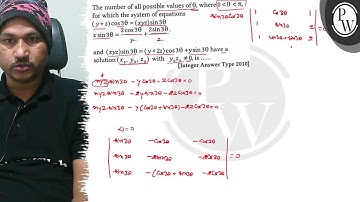 The number of all possible values of θ, where 0 < θ < π,
for which the system of equations
(y + z) cos3θ = (xyz) sin3θ
x sin3θ = 2cos3θ/y + 2sin3θ/z
and (xyz) sin3θ = (y + 2z) cos3θ + y sin3θ have a
solution (x₀, y₀, z₀) with y₀z₀ ≠ 0, is ......
[Integer Answer Type 2010]
xyz sin3θ - y cos3θ - z cos3θ = 0
xyz sin3θ - 2y sin3θ - 2z cos3θ = 0
xyz sin3θ - y (cos3θ + sin3θ) - 2z cos3θ = 0
Δ = 0
sin3θ - cos3θ - cos3θ
sin3θ - 2sin3θ - 2cos3θ = 0
sin3θ - (cos3θ + sin3θ - 2cos3θ
sin3θ cos3θ
1 cos3θ 1
1 2sin3θ 2 = 0
1 cos3θ + sin3θ 2
PW